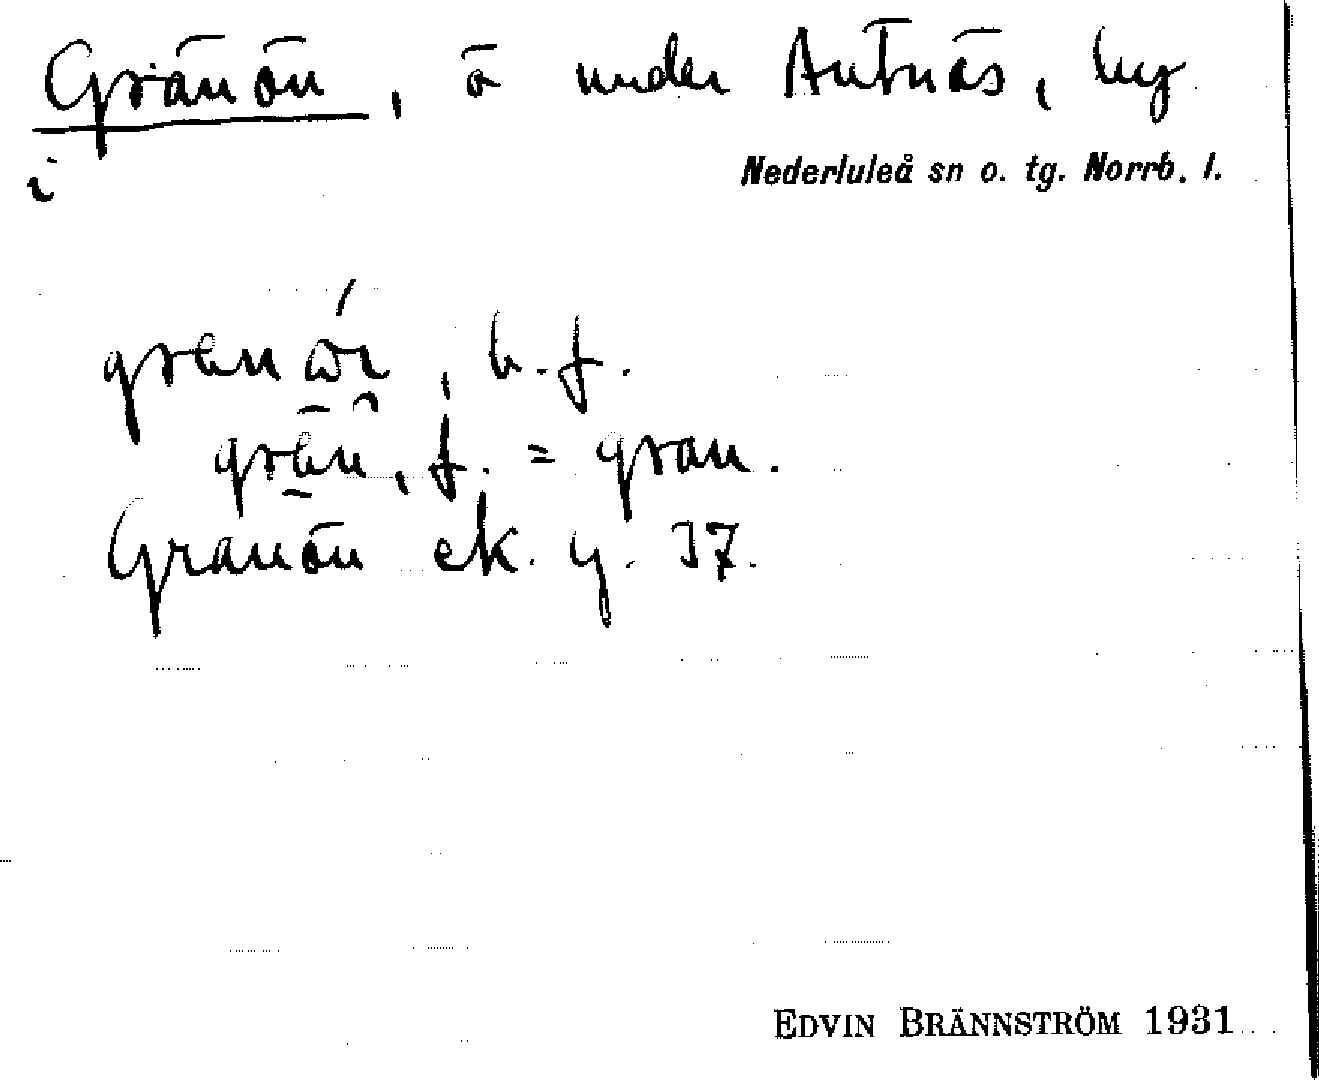 Gränön, ö under Antnäs, by
i Nederluleå sn o. tg. Norrb. l.
b. f.
f. = gran.
Granön ek. y. 37.
EDVIN BRÄNNSTRÖM 1931